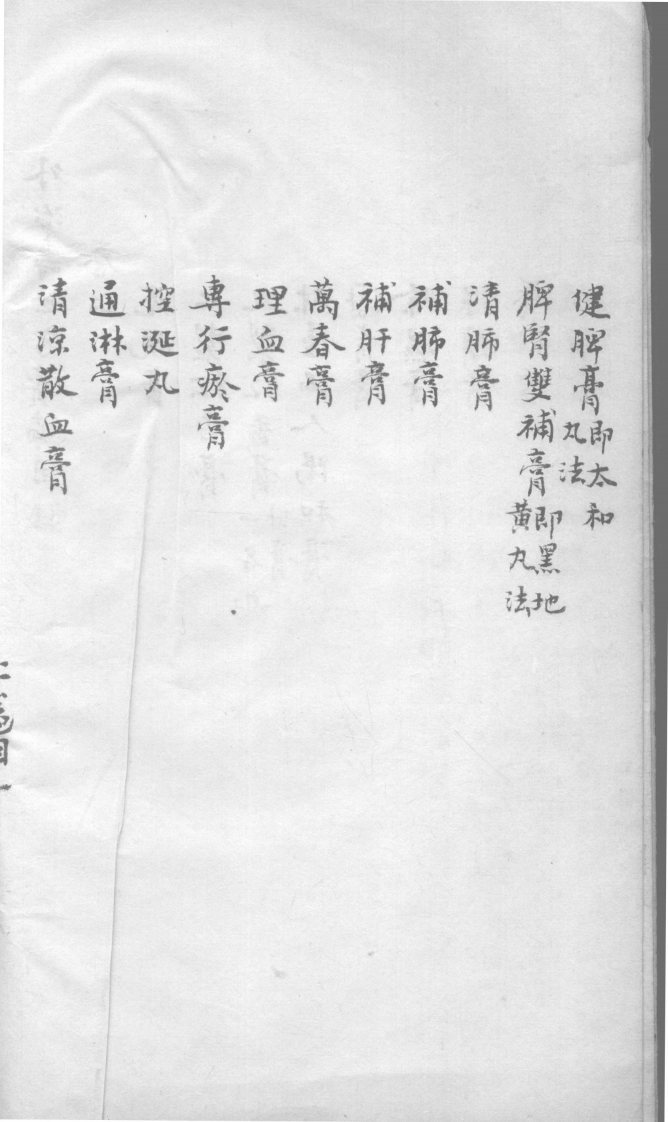 健脾膏即太和丸法
脾腎雙補膏即黑地黃丸法
清肺膏
補肺膏
補肝膏
萬春膏
理血膏
專行瘀膏
控涎丸
通淋膏
清涼散血膏